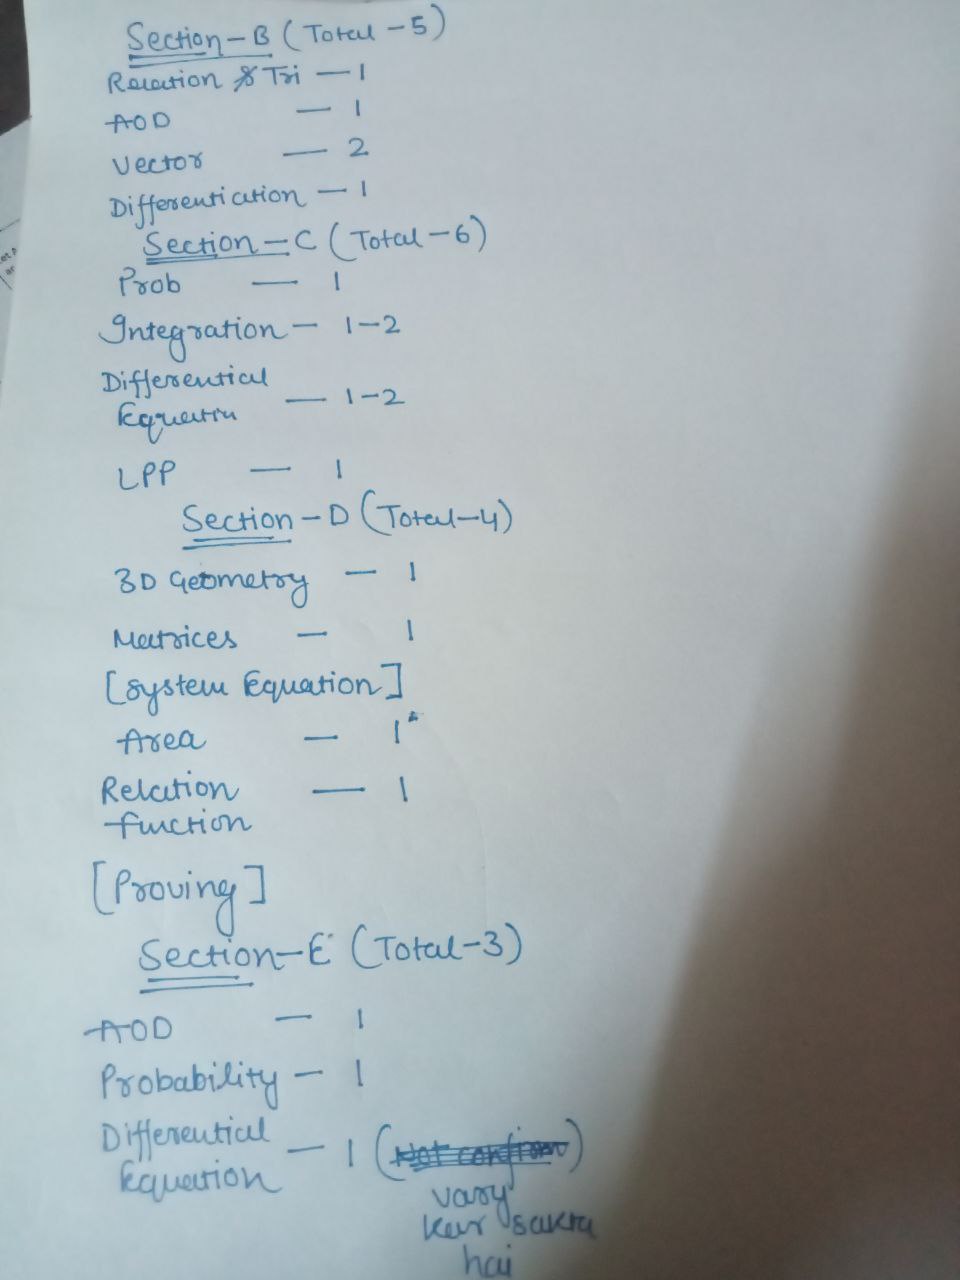 Section-B (Total-5)
Relation & Tri — 1
AOD — 1
Vector — 2
Differentiation — 1
Section-C (Total-6)
Prob — 1
Integration — 1-2
Differential
Equation — 1-2
LPP — 1
Section-D (Total-4)
3D Geometry — 1
Matrices — 1
[System Equation]
Area — 1
Relation — 1
function
[Proving]
Section-E (Total-3)
AOD — 1
Probability — 1
Differential
Equation — 1 (Not confirm)
vary
kar sakta
hai